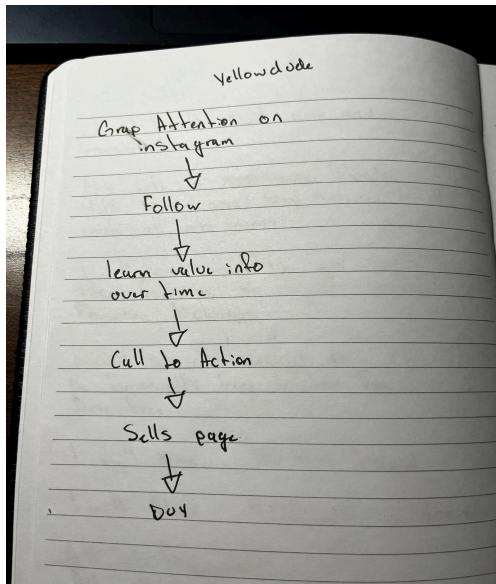 Yellowdude
Grap Attention on
instagram
Follow
learn value info
over time
Call to Action
Sells page
BUY